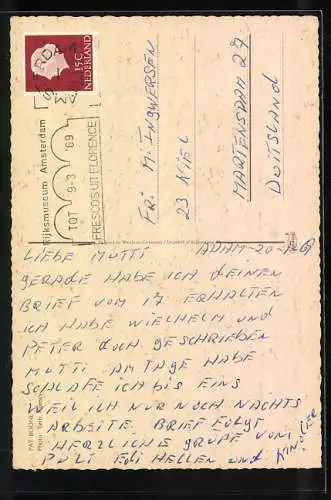 15 C
NEDERLAND
AMSTERDAM
Rijksmuseum Amsterdam
TOT 9-3 '69
FRESCO'S UIT FLORENCE
FRL M. INGWERSEN
23 KIEL
MARTENSDAM 27
DUITSLAND
LIEBE MUTTI ADAM-20-1-69
GERADE HABE ICH DEINEN
BRIEF VOM 17 ERHALTEN
ICH HABE WIELHELM UND
PETER DOCH GESCHRIEBEN
MUTTI AM TAGE HABE
SCHLAFE ICH BIS EINS
WEIL ICH NUR NOCH NACHTS
ARBEITE. BRIEF FOLGT
HERZLICHE GRUPE VOM
PULI EDI HELLEN UND KINDER
PAT BOONE